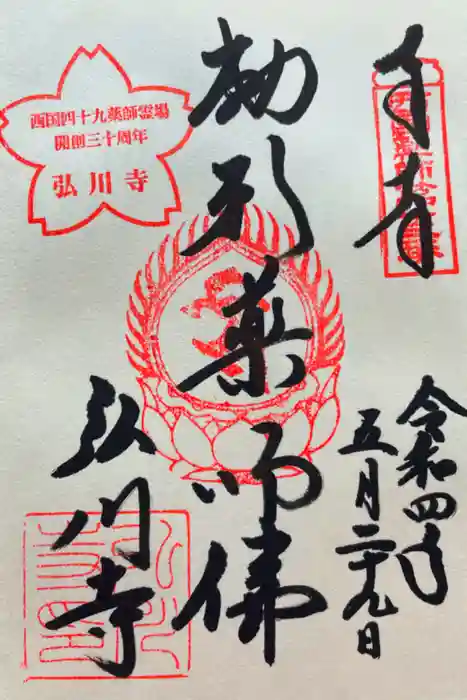 奉拝
形薬師佛
弘川寺
令和四年
五月二十九日
西国四十九薬師霊場
開創三十周年
弘川寺